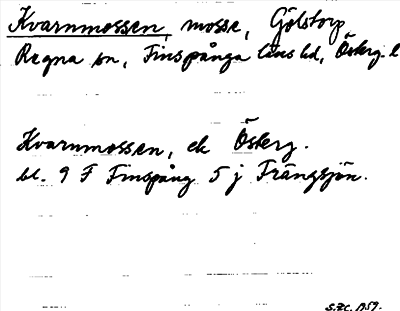 Kvarnmossen, mosse, Gölstorp
Regna sn, Finspånga läns hd, Österg. l
Kvarnmossen, ek Österg.
bl. 9 F Finspång 5 j Trängsjön.
1959.